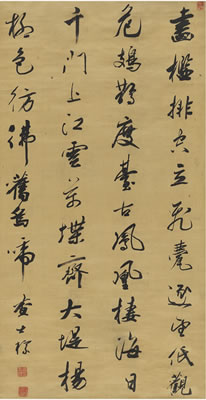 畫檻排空立飛甍逐望低觀
危鳷鵲度臺古鳳凰棲海日
千門上江雲萬堞齊大堤楊
柳色彷彿舊烏啼 查士標